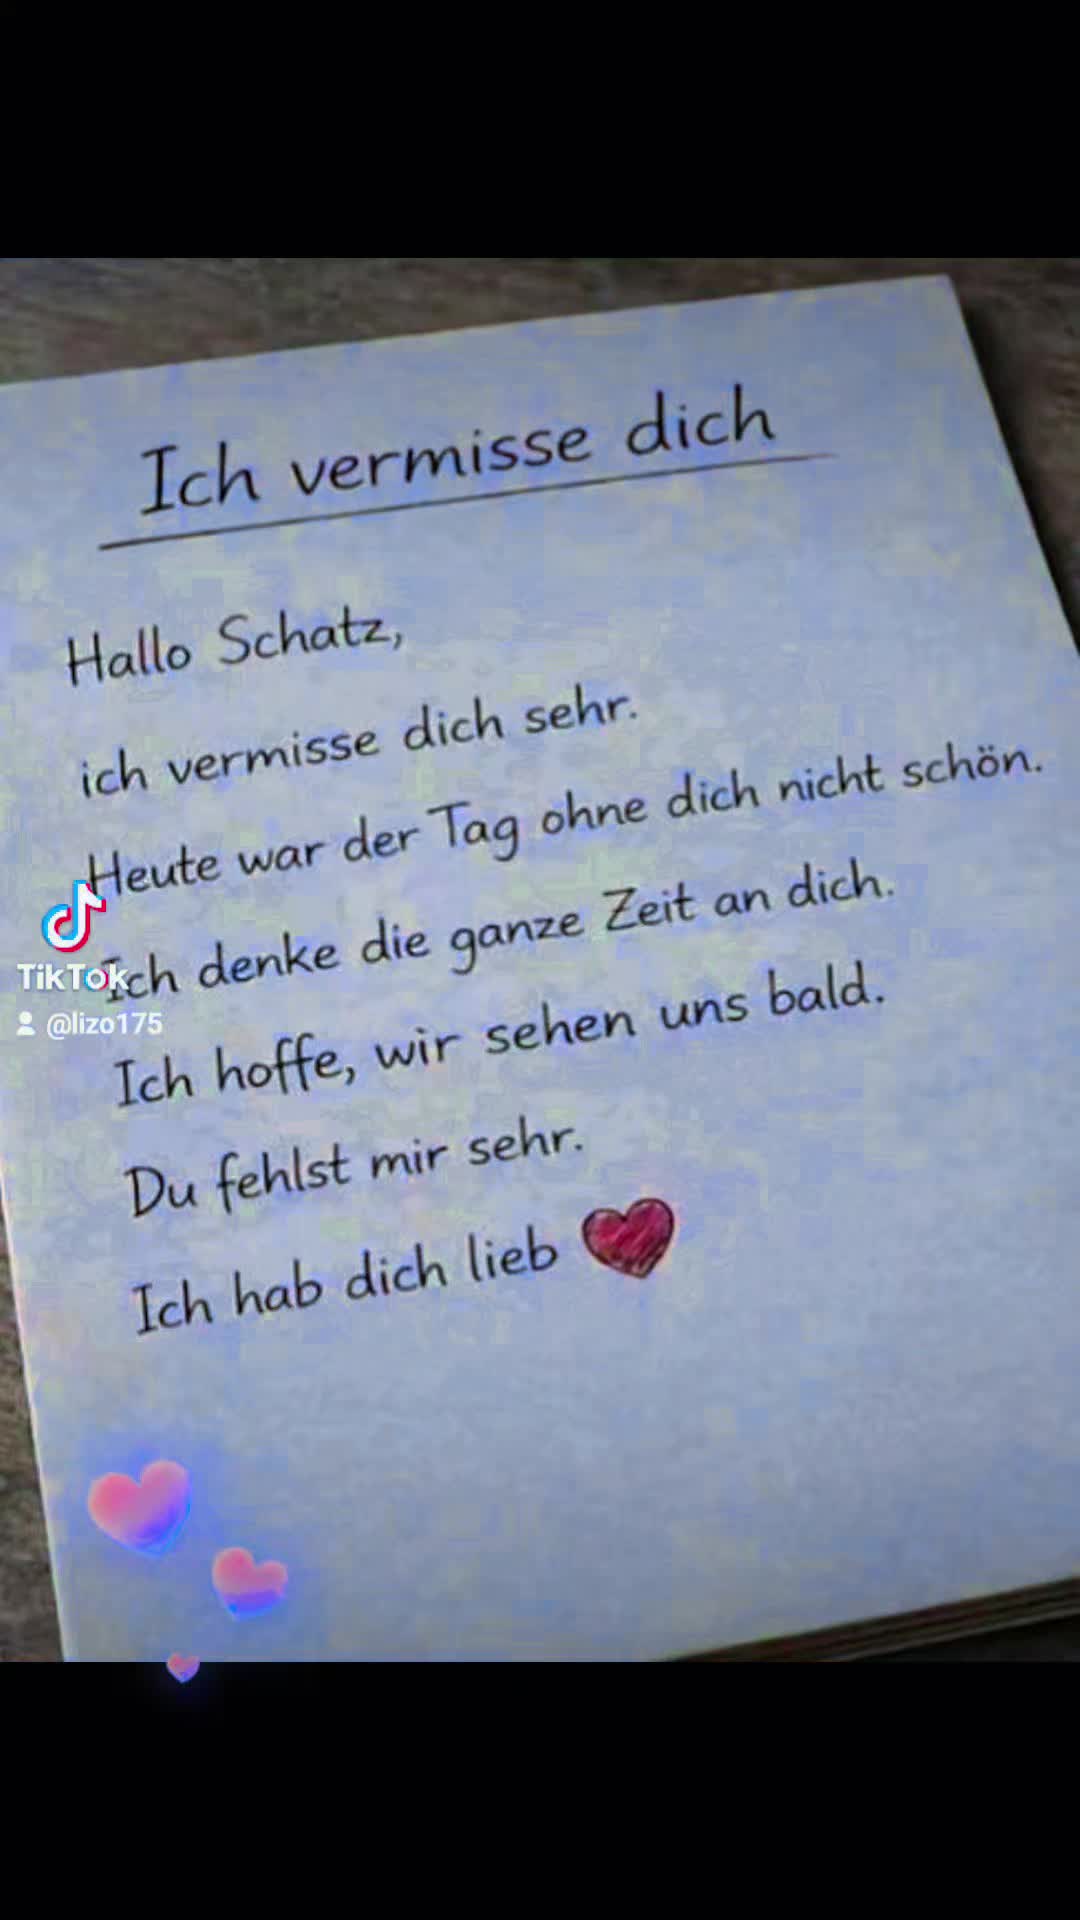 Ich vermisse dich
Hallo Schatz,
ich vermisse dich sehr.
Heute war der Tag ohne dich nicht schön.
Ich denke die ganze Zeit an dich.
Ich hoffe, wir sehen uns bald.
Du fehlst mir sehr.
Ich hab dich lieb
TikTok
@lizo175